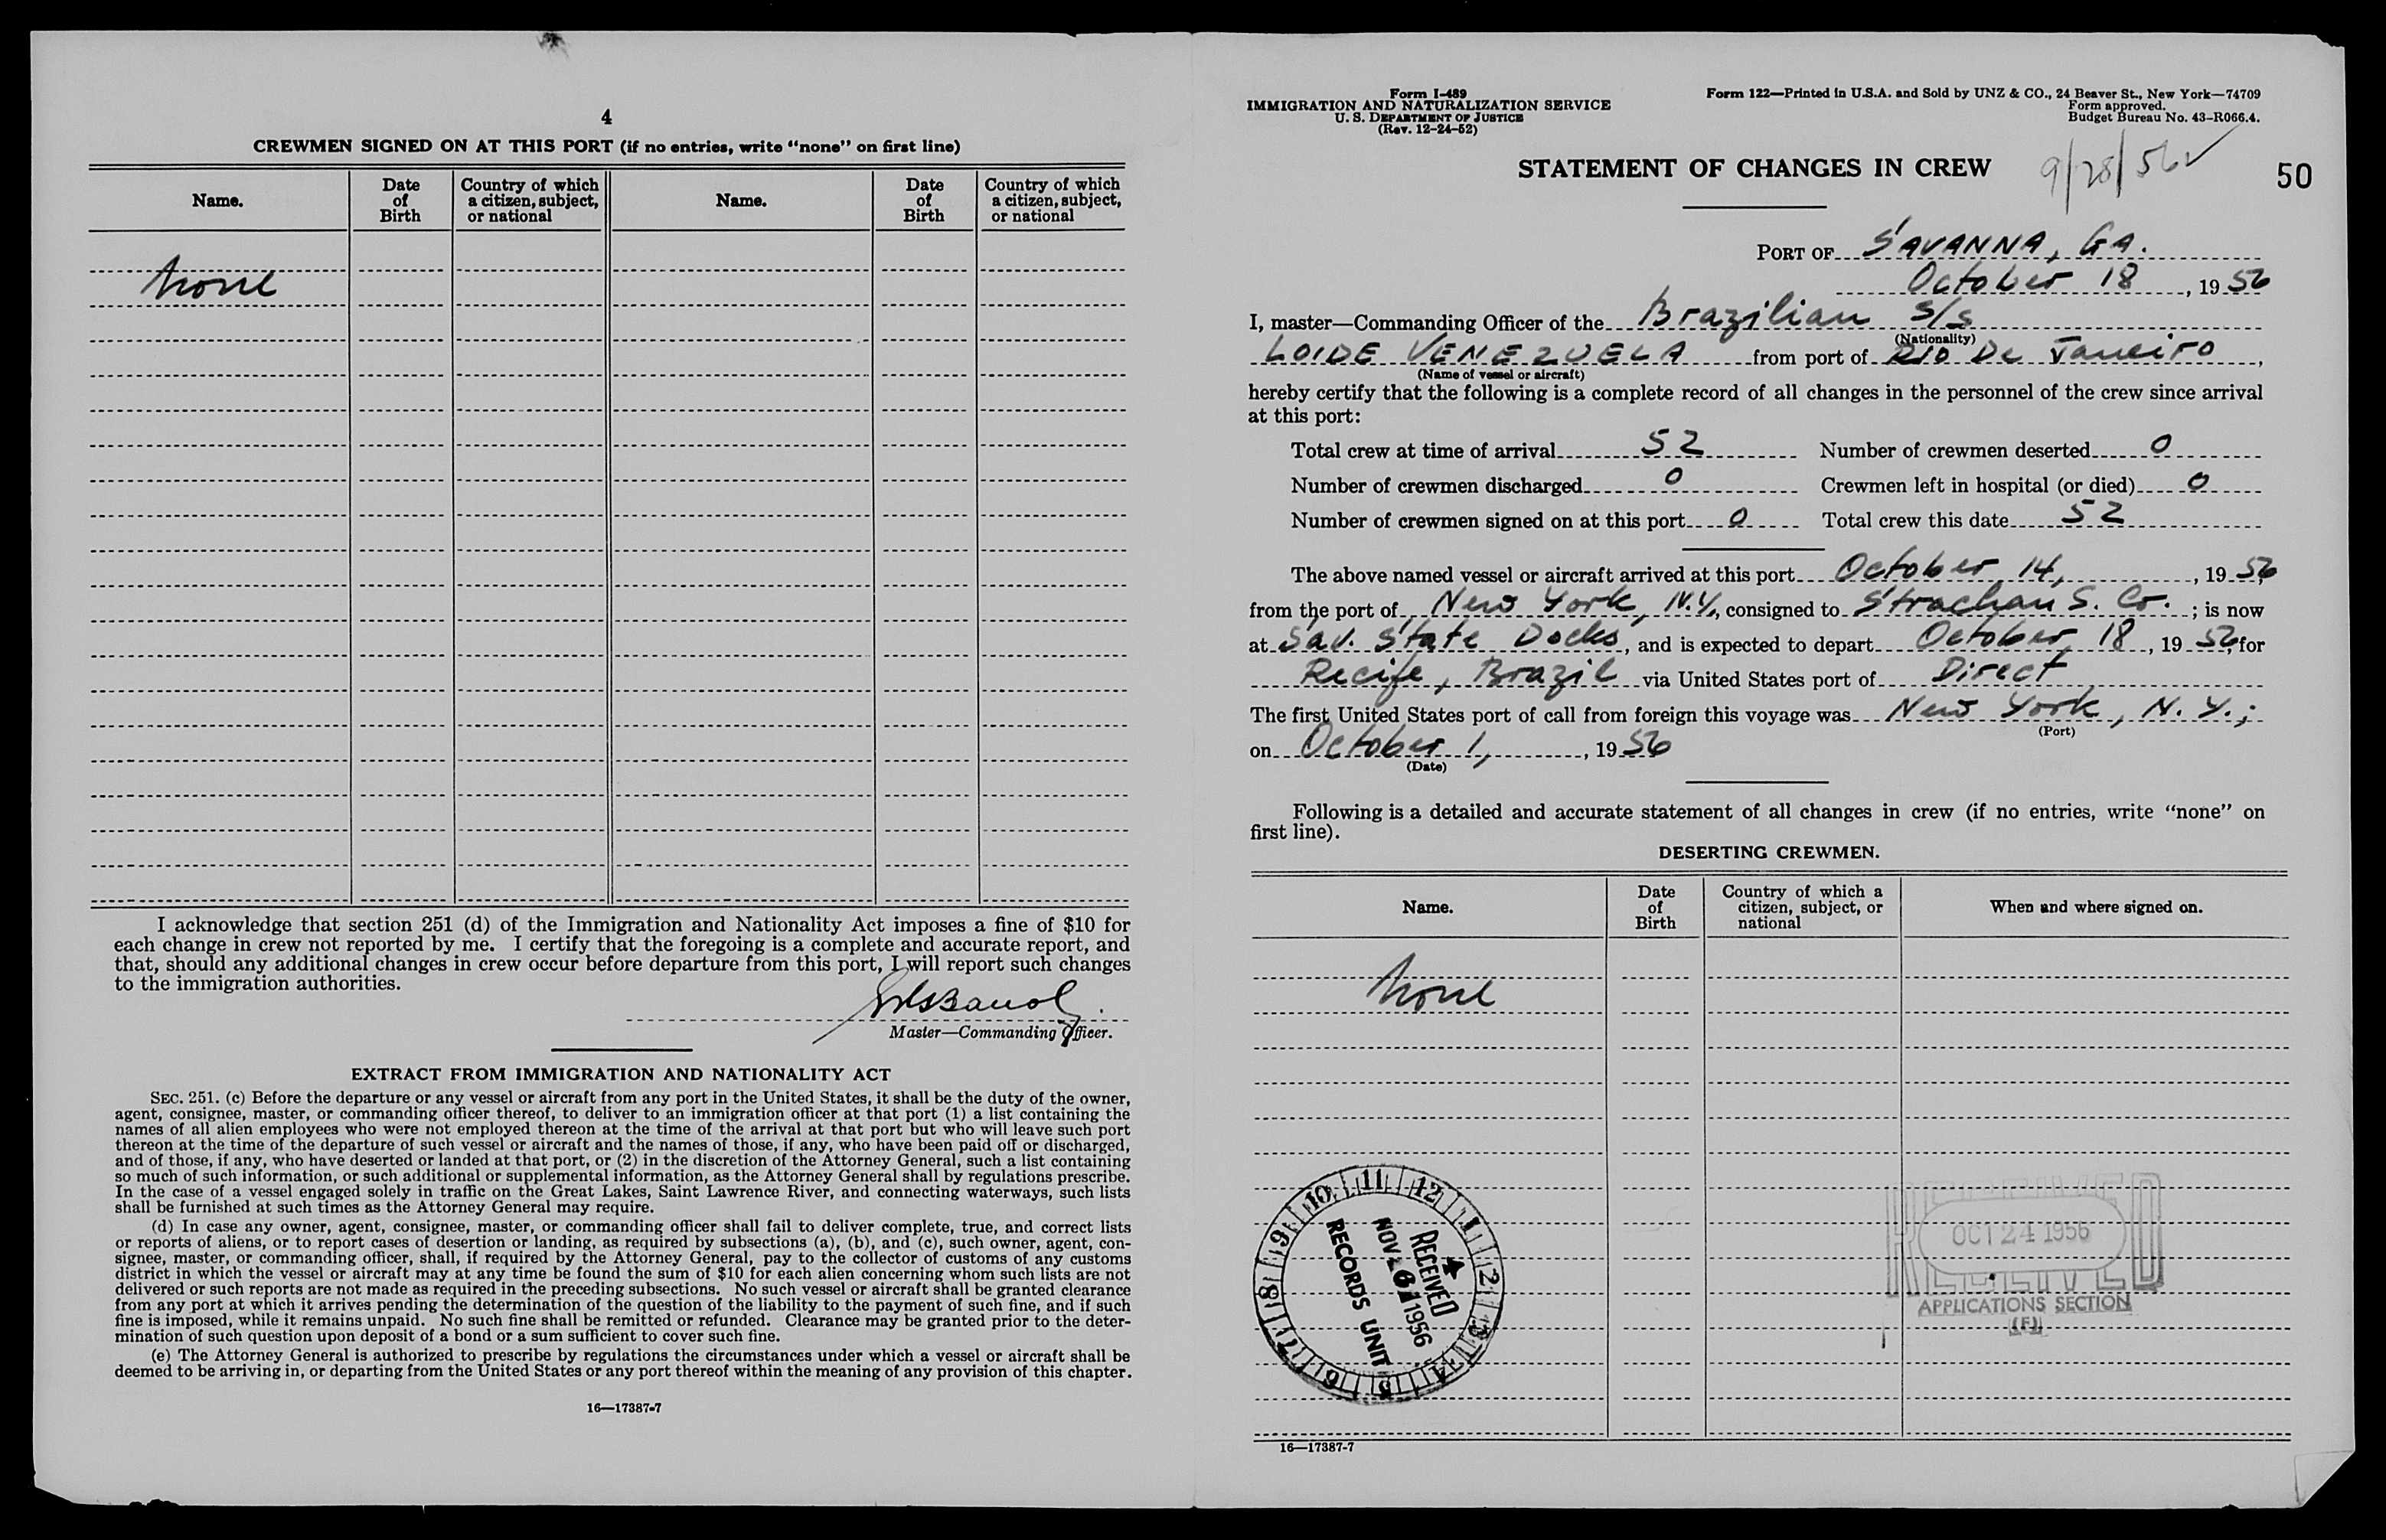 4
CREWMEN SIGNED ON AT THIS PORT (if no entries, write "none" on first line)
Name. Date of Birth Country of which a citizen, subject, or national Name. Date of Birth Country of which a citizen, subject, or national
None
I acknowledge that section 251 (d) of the Immigration and Nationality Act imposes a fine of $10 for
each change in crew not reported by me. I certify that the foregoing is a complete and accurate report, and
that, should any additional changes in crew occur before departure from this port, I will report such changes
to the immigration authorities.
Master—Commanding Officer.
EXTRACT FROM IMMIGRATION AND NATIONALITY ACT
SEC. 251. (c) Before the departure or any vessel or aircraft from any port in the United States, it shall be the duty of the owner,
agent, consignee, master, or commanding officer thereof, to deliver to an immigration officer at that port (1) a list containing the
names of all alien employees who were not employed thereon at the time of the arrival at that port but who will leave such port
thereon at the time of the departure of such vessel or aircraft and the names of those, if any, who have been paid off or discharged,
and of those, if any, who have deserted or landed at that port, or (2) in the discretion of the Attorney General, such a list containing
so much of such information, or such additional or supplemental information, as the Attorney General shall by regulations prescribe.
In the case of a vessel engaged solely in traffic on the Great Lakes, Saint Lawrence River, and connecting waterways, such lists
shall be furnished at such times as the Attorney General may require.
(d) In case any owner, agent, consignee, master, or commanding officer shall fail to deliver complete, true, and correct lists
or reports of aliens, or to report cases of desertion or landing, as required by subsections (a), (b), and (c), such owner, agent, con-
signee, master, or commanding officer, shall, if required by the Attorney General, pay to the collector of customs of any customs
district in which the vessel or aircraft may at any time be found the sum of $10 for each alien concerning whom such lists are not
delivered or such reports are not made as required in the preceding subsections. No such vessel or aircraft shall be granted clearance
from any port at which it arrives pending the determination of the question of the liability to the payment of such fine, and if such
fine is imposed, while it remains unpaid. No such fine shall be remitted or refunded. Clearance may be granted prior to the deter-
mination of such question upon deposit of a bond or a sum sufficient to cover such fine.
(e) The Attorney General is authorized to prescribe by regulations the circumstances under which a vessel or aircraft shall be
deemed to be arriving in, or departing from the United States or any port thereof within the meaning of any provision of this chapter.
16—17387-7
Form I-489
IMMIGRATION AND NATURALIZATION SERVICE
U. S. DEPARTMENT OF JUSTICE
(Rev. 12-24-52)
Form 122—Printed in U.S.A. and Sold by UNZ & CO., 24 Beaver St., New York—74709
Form approved.
Budget Bureau No. 43-R066.4.
STATEMENT OF CHANGES IN CREW
9/28/56 ✓
50
PORT OF SAVANNA, GA.
October 18, 1956
I, master—Commanding Officer of the Brazilian S/S
(Nationality)
LOIDE VENEZUELA from port of RIO De Janeiro,
(Name of vessel or aircraft)
hereby certify that the following is a complete record of all changes in the personnel of the crew since arrival
at this port:
Total crew at time of arrival 52 Number of crewmen deserted 0
Number of crewmen discharged 0 Crewmen left in hospital (or died) 0
Number of crewmen signed on at this port 0 Total crew this date 52
The above named vessel or aircraft arrived at this port October 14, , 1956,
from the port of New York, N.Y., consigned to Strachan S. Co. ; is now
at Sav. State Docks, and is expected to depart October 18, 1956, for
Recife, Brazil via United States port of Direct
The first United States port of call from foreign this voyage was New York, N. Y.;
(Port)
on October 1, , 1956
(Date)
Following is a detailed and accurate statement of all changes in crew (if no entries, write "none" on
first line).
DESERTING CREWMEN.
Name. Date of Birth Country of which a citizen, subject, or national When and where signed on.
None
11 12 1 2 3 4 5 6 7 8 9 10
RECEIVED
NOV 1956
RECORDS UNIT
RECEIVED
OCT 24 1956
APPLICATIONS SECTION
(F)
16—17387-7